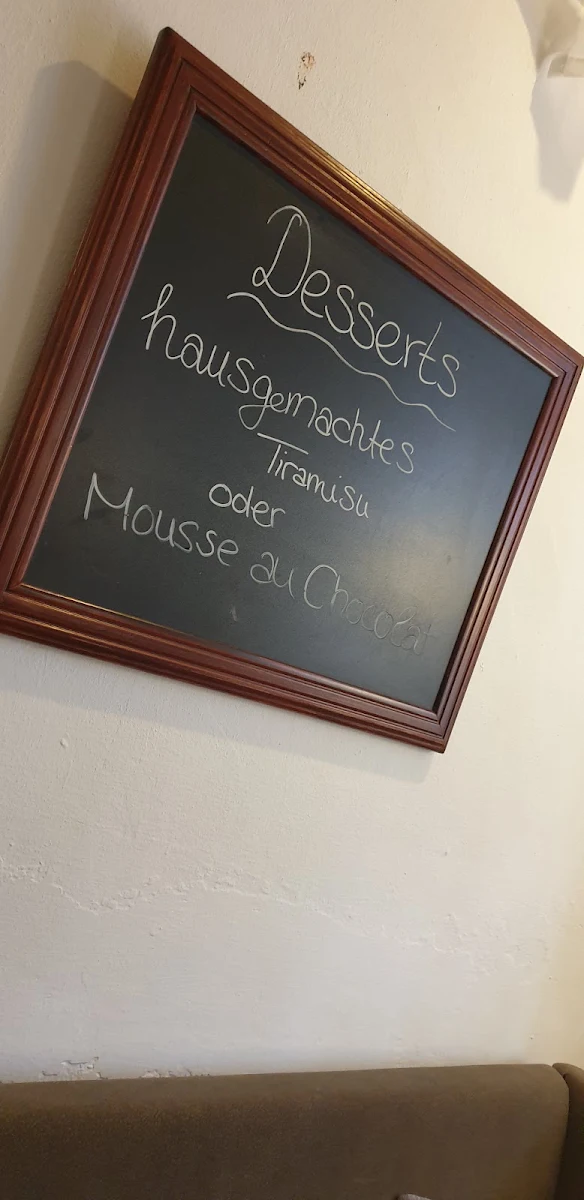 Desserts
hausgemachtes
Tiramisu
oder
Mousse au Chocolat